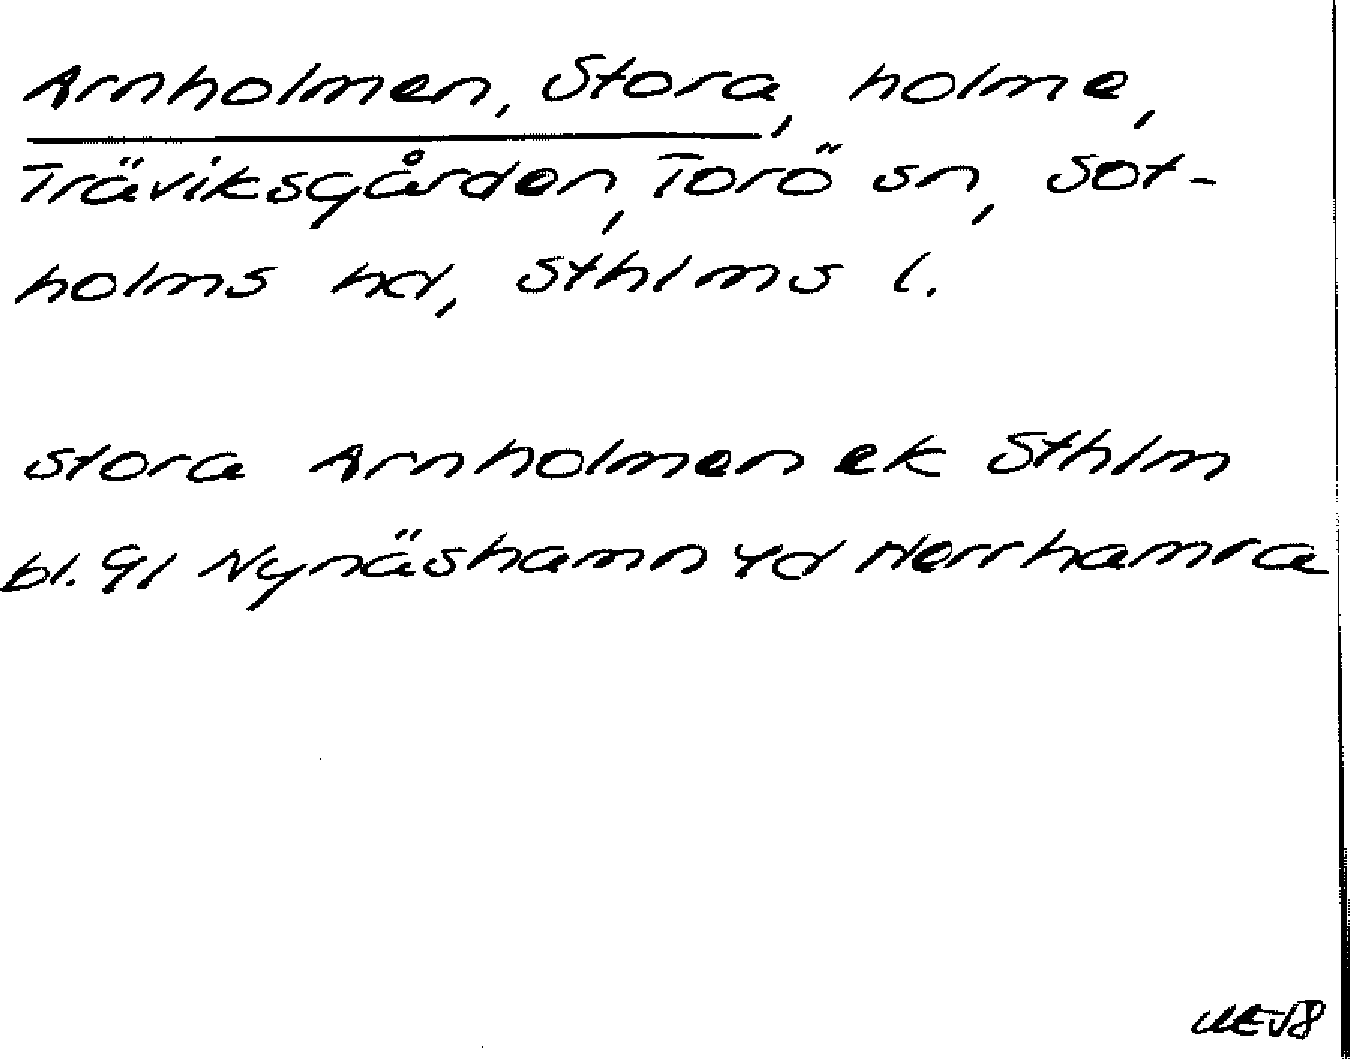 Arnholmen, Stora, holme,
Träviksgården, Torö sn, Sot-
holms hd, Sthlms l.
Stora Arnholmen ek Sthlm
bl. 91 Nynäshamn 4d Herrhamra